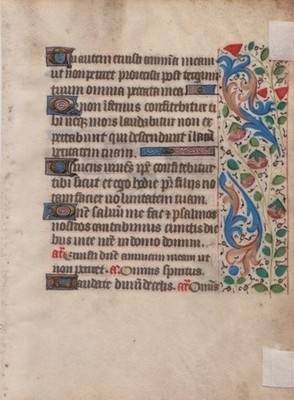 Tu autem eruisti animam meam
ut non periret proiecisti post tergum
tuum omnia peccata mea.
Q non ifernus confitebitur ti
bi neq; mors laudabit non ex
pectabunt qui descendunt i lacū
veritatem tuam.
Viuens viuens ipē confitebitur
tibi sicut et ego hodie pr̄ filijs no
tam faciet veritatem tuam.
Dn̄e saluū me fac et psalmos
nostros cantabimus cunctis die
bus vite nr̄e in domo domini.
añ Eruisti dn̄e animam meam ut
non periret. añ. Omnis spiritus.
Laudate dn̄m de celis. añ. Omis